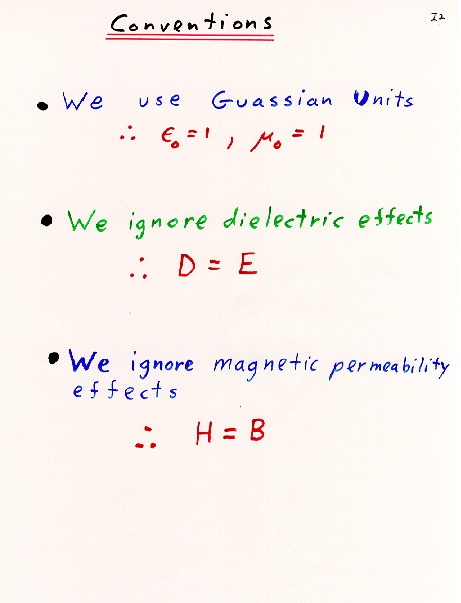 Conventions
I2
• We use Guassian Units
∴ ε₀ = 1 , μ₀ = 1
• We ignore dielectric effects
∴ D = E
• We ignore magnetic permeability
effects
∴ H = B